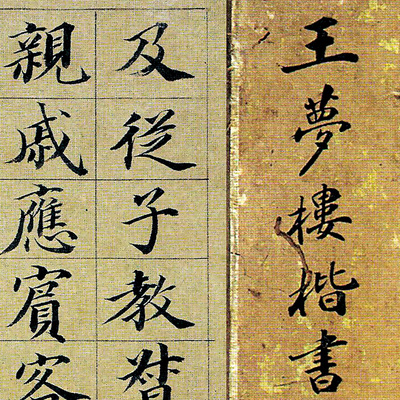 王夢樓楷書
及從子教
親戚應賓客